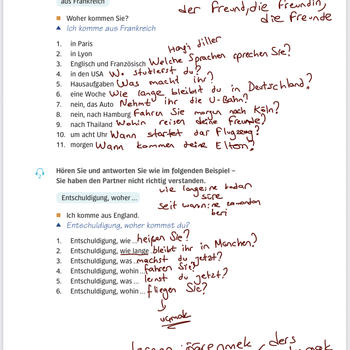 aus Frankreich
der Freund, die Freundin,
die Freunde
Woher kommen Sie?
Ich komme aus Frankreich
1. in Paris
2. in Lyon
Hangi diller
3. Englisch und Französisch Welche Sprachen sprechen Sie?
4. in den USA W. studierst du?
5. Hausaufgaben Was macht ihr?
6. eine Woche Wie lange bleibt du in Deutschland?
7. nein, das Auto Nehmt ihr die U-Bahn?
8. nein, nach Hamburg Fahren Sie morgen nach Köln?
9. nach Thailand Wohin reisen deine Freunde?
10. um acht Uhr Wann startet das Flugzeug?
11. morgen Wann kommen deine Eltern?
Hören Sie und antworten Sie wie im folgenden Beispiel –
Sie haben den Partner nicht richtig verstanden.
wie lange
süre
Entschuldigung, woher ...
seit wann
beri
Ich komme aus England.
Entschuldigung, woher kommst du?
1. Entschuldigung, wie ... heißen Sie?
2. Entschuldigung, wie lange bleibt ihr in München?
3. Entschuldigung, was ... machst du jetzt?
4. Entschuldigung, wohin ... fahren Sie?
5. Entschuldigung, was ... lernst du jetzt?
6. Entschuldigung, wohin ... fliegen Sie?
uçmak
lernen öğrenmek ders